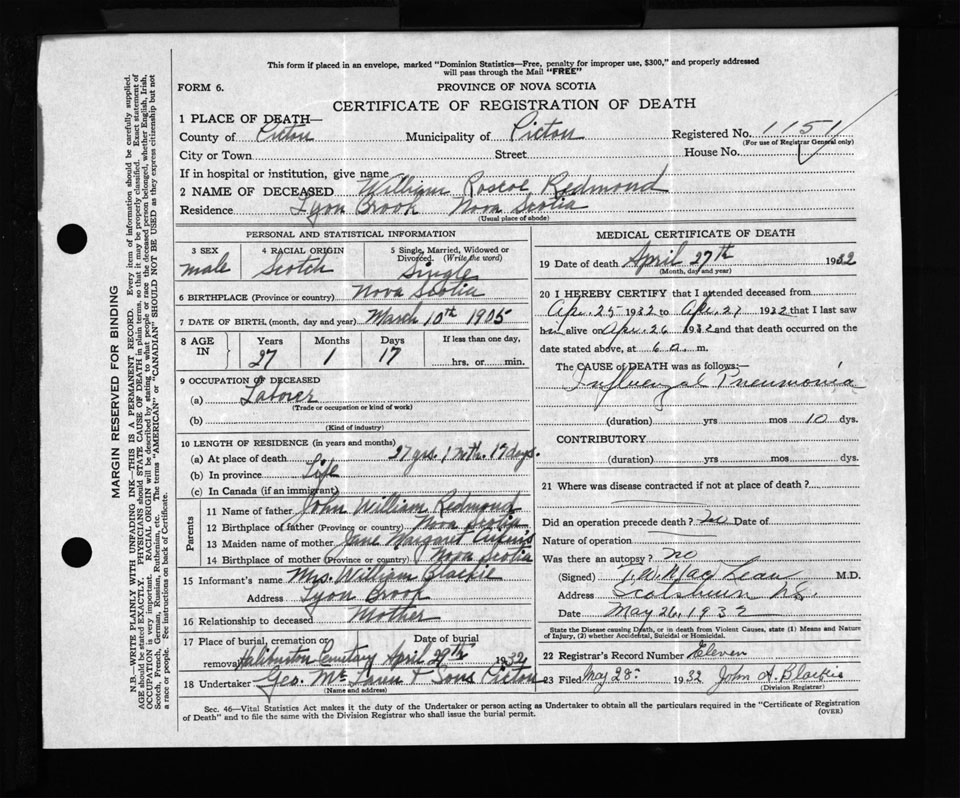 This form if placed in an envelope, marked "Dominion Statistics—Free, penalty for improper use, $300," and properly addressed
will pass through the Mail "FREE"
FORM 6.
PROVINCE OF NOVA SCOTIA
CERTIFICATE OF REGISTRATION OF DEATH
1 PLACE OF DEATH—
County of Pictou Municipality of Pictou Registered No. 1151
(For use of Registrar General only)
City or Town Street House No.
If in hospital or institution, give name
2 NAME OF DECEASED William Roscoe Redmond
Residence Lyon Brook Nova Scotia
(Usual place of abode)
PERSONAL AND STATISTICAL INFORMATION
3 SEX 4 RACIAL ORIGIN 5 Single, Married, Widowed or
Divorced. (Write the word)
male Scotch Single
6 BIRTHPLACE (Province or country) Nova Scotia
7 DATE OF BIRTH, (month, day and year) March 10th 1905
8 AGE IN Years Months Days If less than one day,
27 1 17 hrs. or min.
9 OCCUPATION OF DECEASED
(a) Laborer
(Trade or occupation or kind of work)
(b)
(Kind of industry)
10 LENGTH OF RESIDENCE (in years and months)
(a) At place of death 27 yrs. 1 mth. 17 days.
(b) In province Life
(c) In Canada (if an immigrant)
Parents
11 Name of father John William Redmond
12 Birthplace of father (Province or country) Nova Scotia
13 Maiden name of mother Jane Margaret
14 Birthplace of mother (Province or country) Nova Scotia
15 Informant's name Mrs. William Blackie
Address Lyon Brook
16 Relationship to deceased Mother
17 Place of burial, cremation or Date of burial
removal Haliburton Cemetary April 29th 1932
18 Undertaker Geo. & Sons Pictou
(Name and address)
MEDICAL CERTIFICATE OF DEATH
19 Date of death April 27th 1932
(Month, day and year)
20 I HEREBY CERTIFY that I attended deceased from
Apr. 25 1932 to Apr. 27 1932 that I last saw
him alive on Apr. 26 1932 and that death occurred on the
date stated above, at 6 a. m.
The CAUSE OF DEATH was as follows:—
Influenzal Pneumonia
(duration) yrs mos 10 dys.
CONTRIBUTORY
(duration) yrs mos dys.
21 Where was disease contracted if not at place of death?
Did an operation precede death? No Date of
Nature of operation
Was there an autopsy? no
(Signed) MacLean M.D.
Address Scotsburn N.S.
Date May 26, 1932
State the Disease causing Death, or in death from Violent Causes, state (1) Means and Nature
of Injury, (2) whether Accidental, Suicidal or Homicidal.
22 Registrar's Record Number Eleven
23 Filed May 28: 1932 John A. Blackie
(Division Registrar)
Sec. 46—Vital Statistics Act makes it the duty of the Undertaker or person acting as Undertaker to obtain all the particulars required in the "Certificate of Registration
of Death" and to file the same with the Division Registrar who shall issue the burial permit.
(OVER)
MARGIN RESERVED FOR BINDING
N.B.—WRITE PLAINLY WITH UNFADING INK—THIS IS A PERMANENT RECORD. Every item of information should be carefully supplied.
AGE should be stated EXACTLY. PHYSICIANS should STATE CAUSE OF DEATH in plain terms, so that it may be properly classified. Exact statement of
OCCUPATION is very important. RACIAL ORIGIN will be described by stating to what people or race the deceased person belonged, whether English, Irish,
Scotch, French, German, Russian, Ruthenian, etc. The terms "AMERICAN" or "CANADIAN" SHOULD NOT BE USED as they express citizenship but not
a race or people. See instructions on back of Certificate.